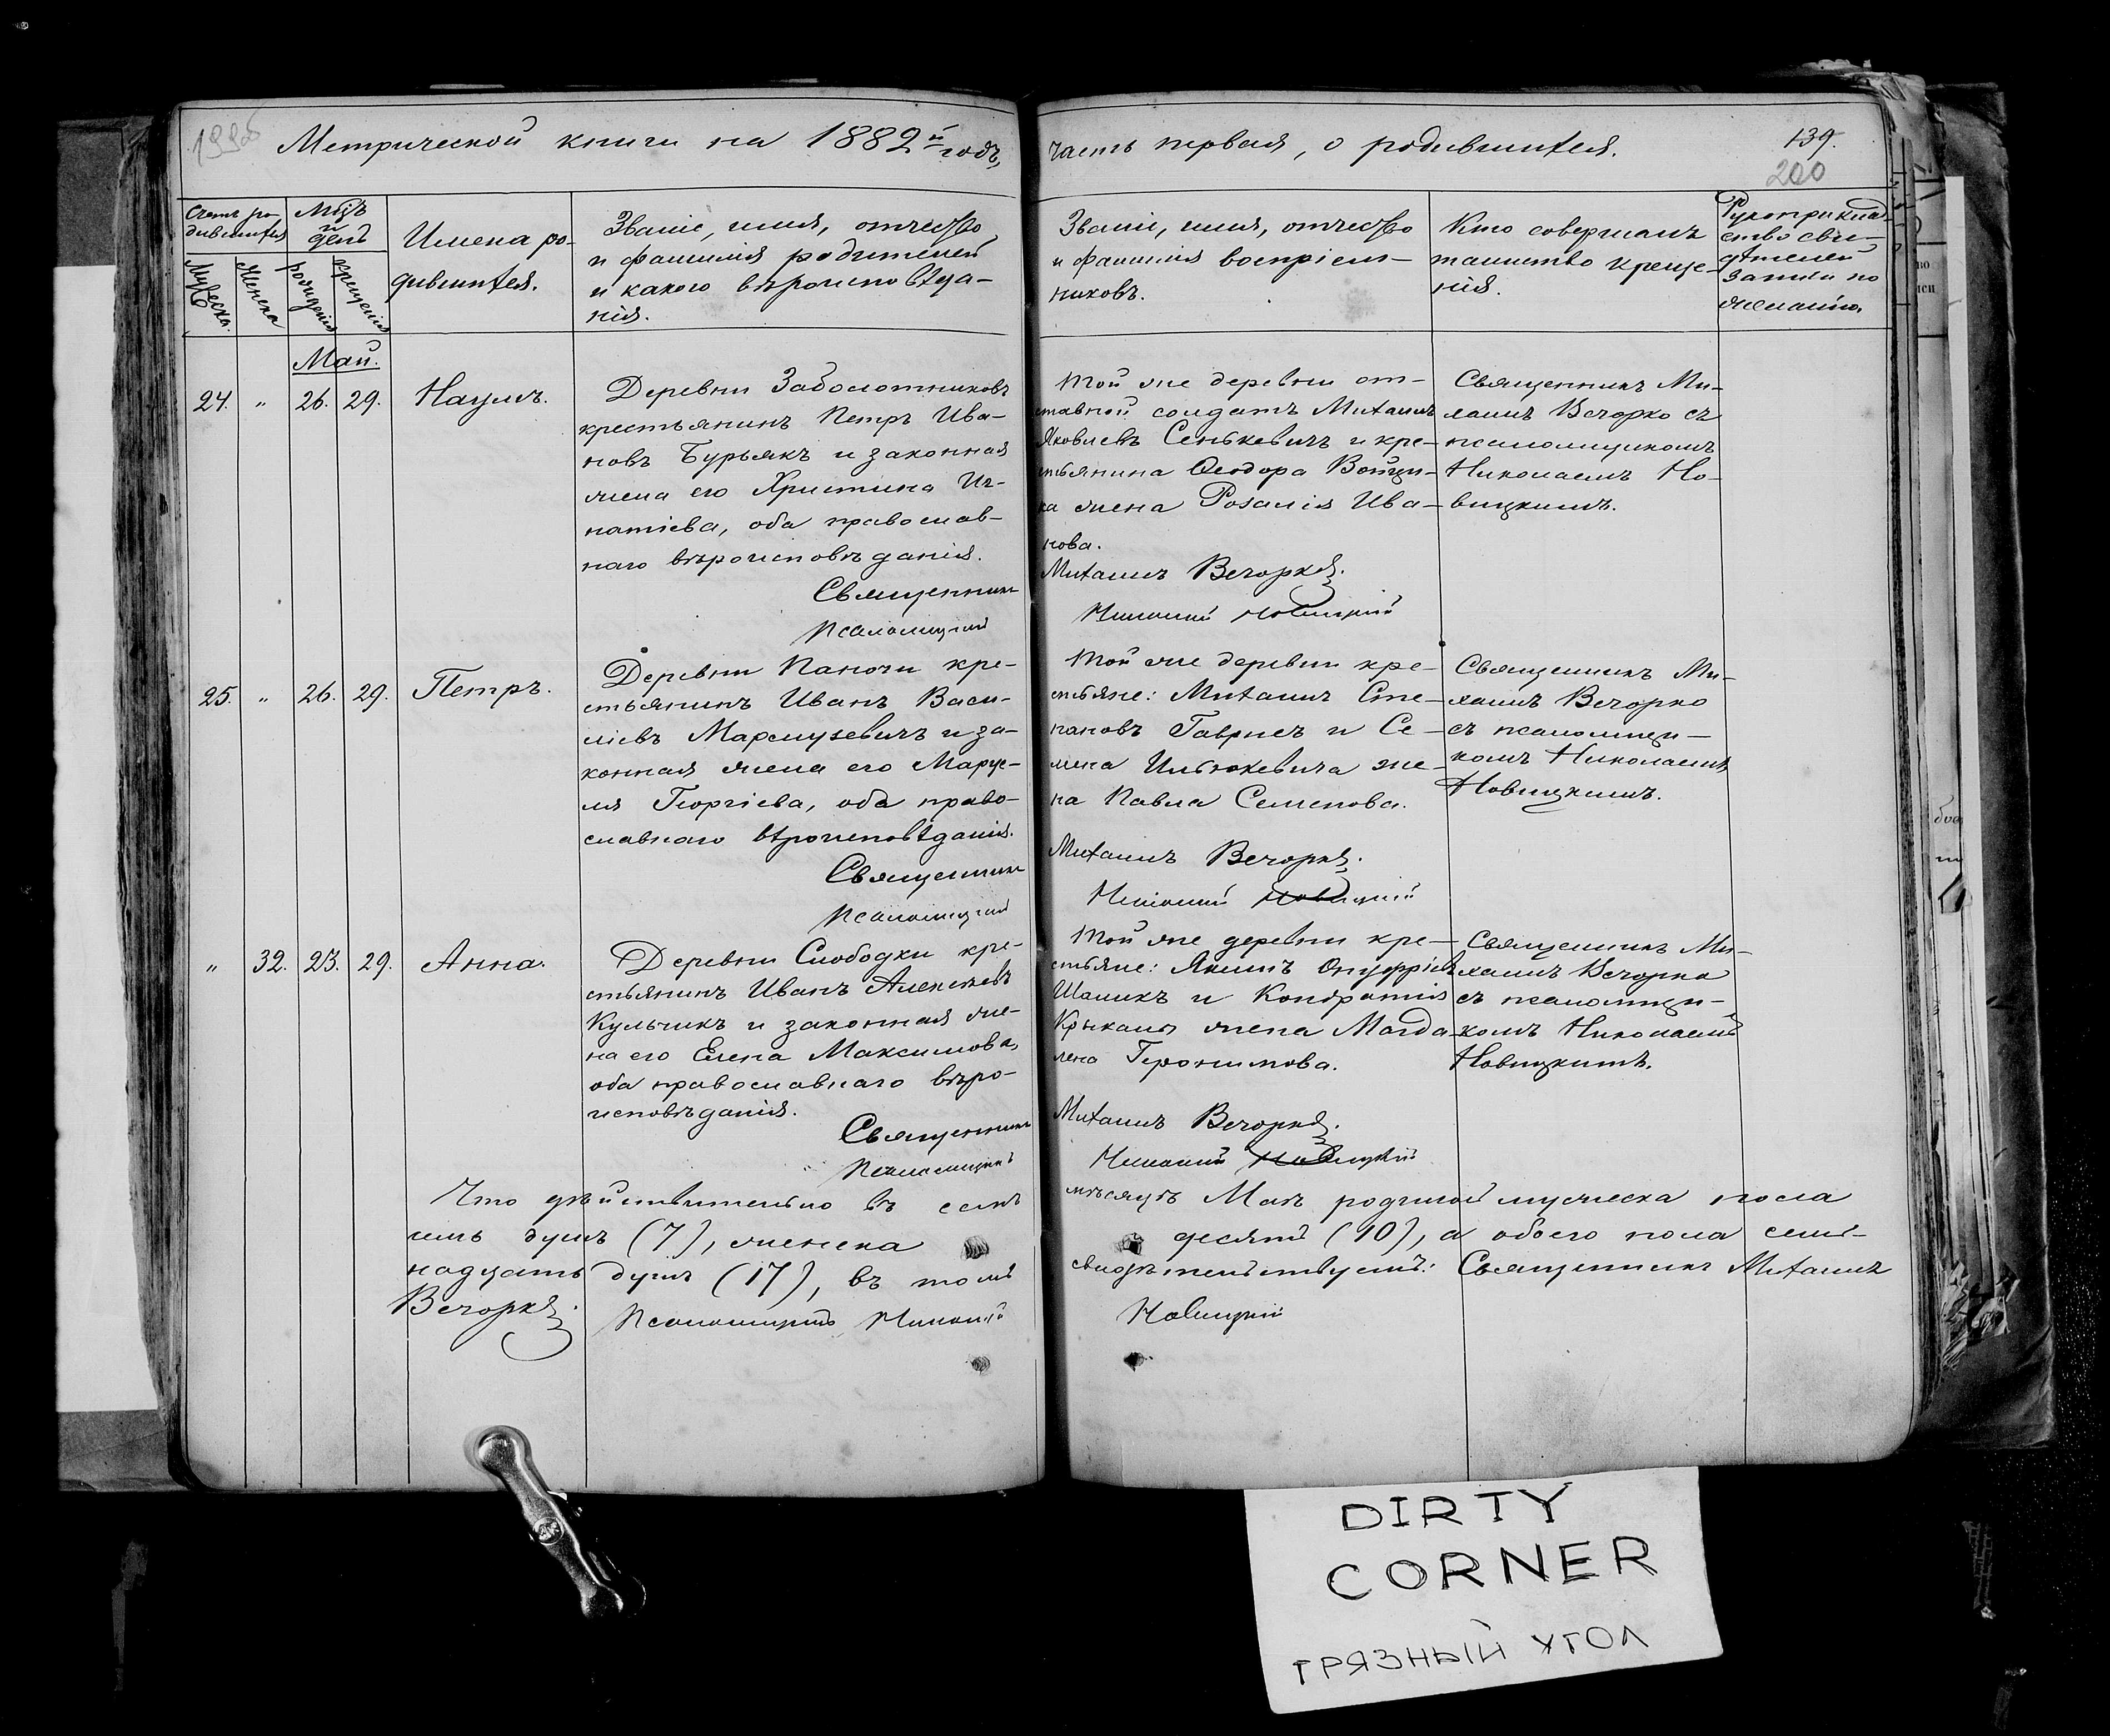 Метрической книги на 1882й годъ,
часть первая, о родившихся.
139.
200
Счетъ ро-
дившихся
Мужеска.
Женска
Мѣцъ
и
день
рожденія
крещенія
Имена ро-
дившихся.
Званіе, имя, отчество
и фамилія родителей
и какого вѣроисповѣда-
нія.
Званіе, имя, отчество
и фамилія воспріем-
никовъ.
Кто совершалъ
таинство креще-
нія.
Рукоприклад-
ство сви-
дѣтелей
записи по
желанію.
Май.
24. " 26. 29. Наумъ.
Деревни Заболотниковъ
крестьянинъ Петръ Ива-
новъ Бурьякъ и законная
жена его Христина Иг-
натіева, оба православ-
наго вѣроисповѣданія.
Священникъ
Псаломщикъ
Той же деревни от-
ставной солдатъ Михаилъ
Яковлевъ Сенькевичъ и кре-
стьянина Ѳеодора Войци-
ка жена Розалія Ива-
нова.
Михаилъ Вечорко.
Николай Новицкій
Священникъ Ми-
хаилъ Вечорко съ
псаломщикомъ
Николаемъ Но-
вицкимъ.
25. " 26. 29. Петръ.
Деревни Паночи кре-
стьянинъ Иванъ Васи-
ліевъ Мармузевичъ и за-
конная жена его Марце-
ля Георгіева, оба право-
славнаго вѣроисповѣданія.
Священникъ
Псаломщикъ
Той же деревни кре-
стьяне: Михаилъ Сте-
пановъ Гаврися и Се-
мена Ильюкевича же-
на Павла Семенова.
Михаилъ Вечорко.
Николай Новицкій
Священникъ Ми-
хаилъ Вечорко
съ псаломщи-
комъ Николаемъ
Новицкимъ.
" 32. 23. 29. Анна.
Деревни Слободки кре-
стьянинъ Иванъ Алексѣевъ
Кульчикъ и законная же-
на его Елена Максимова,
оба православнаго вѣро-
исповѣданія.
Священникъ
Псаломщикъ
Той же деревни кре-
стьяне: Якимъ Онуфріевъ
Шамикъ и Кондратія
Крыкала жена Магда-
лена Геронимова.
Михаилъ Вечорко.
Николай Новицкій
Священникъ Ми-
хаилъ Вечорко
съ псаломщи-
комъ Николаемъ
Новицкимъ.
Что дѣйствительно въ семъ мѣсяцѣ Маѣ родилось мужеска пола
семь душъ (7), женска десять (10), а обоего пола семь-
надцать душъ (17), въ томъ свидѣтельствуемъ: Священникъ Михаилъ
Вечорко. Псаломщикъ Николай Новицкій
DIRTY
CORNER
ГРЯЗНЫЙ УГОЛ